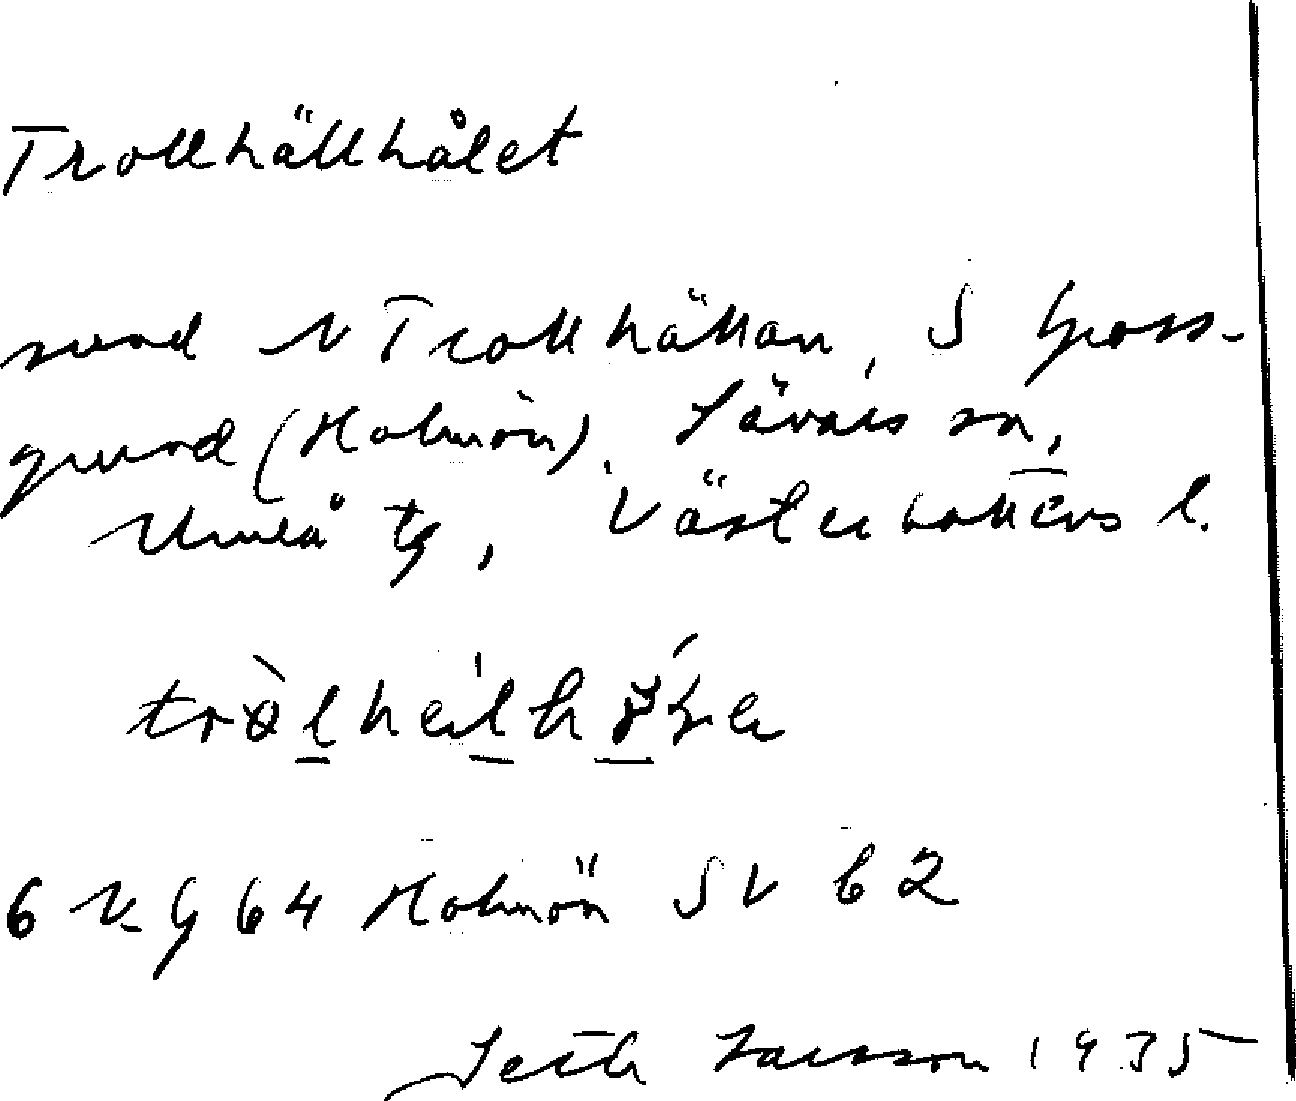 Trollhällhålet
sund N Trollhällan, S Gross-
grund (Holmön). Sävars sn,
Umeå tg, Västerbottens l.
6 Holmön SV b2
Seth Larsson 1935